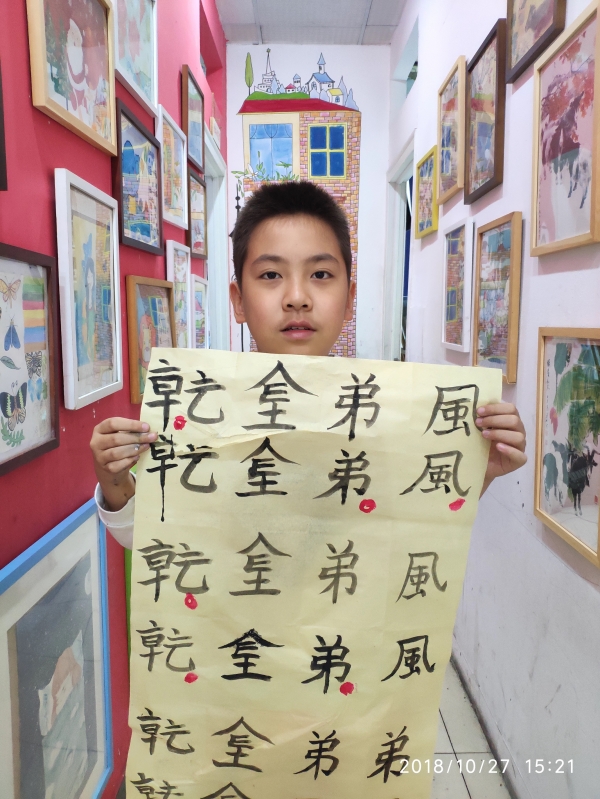 乾全弟風
乾全弟風
乾全弟風
乾全弟風
乾全弟弟
2018/10/27 15:21